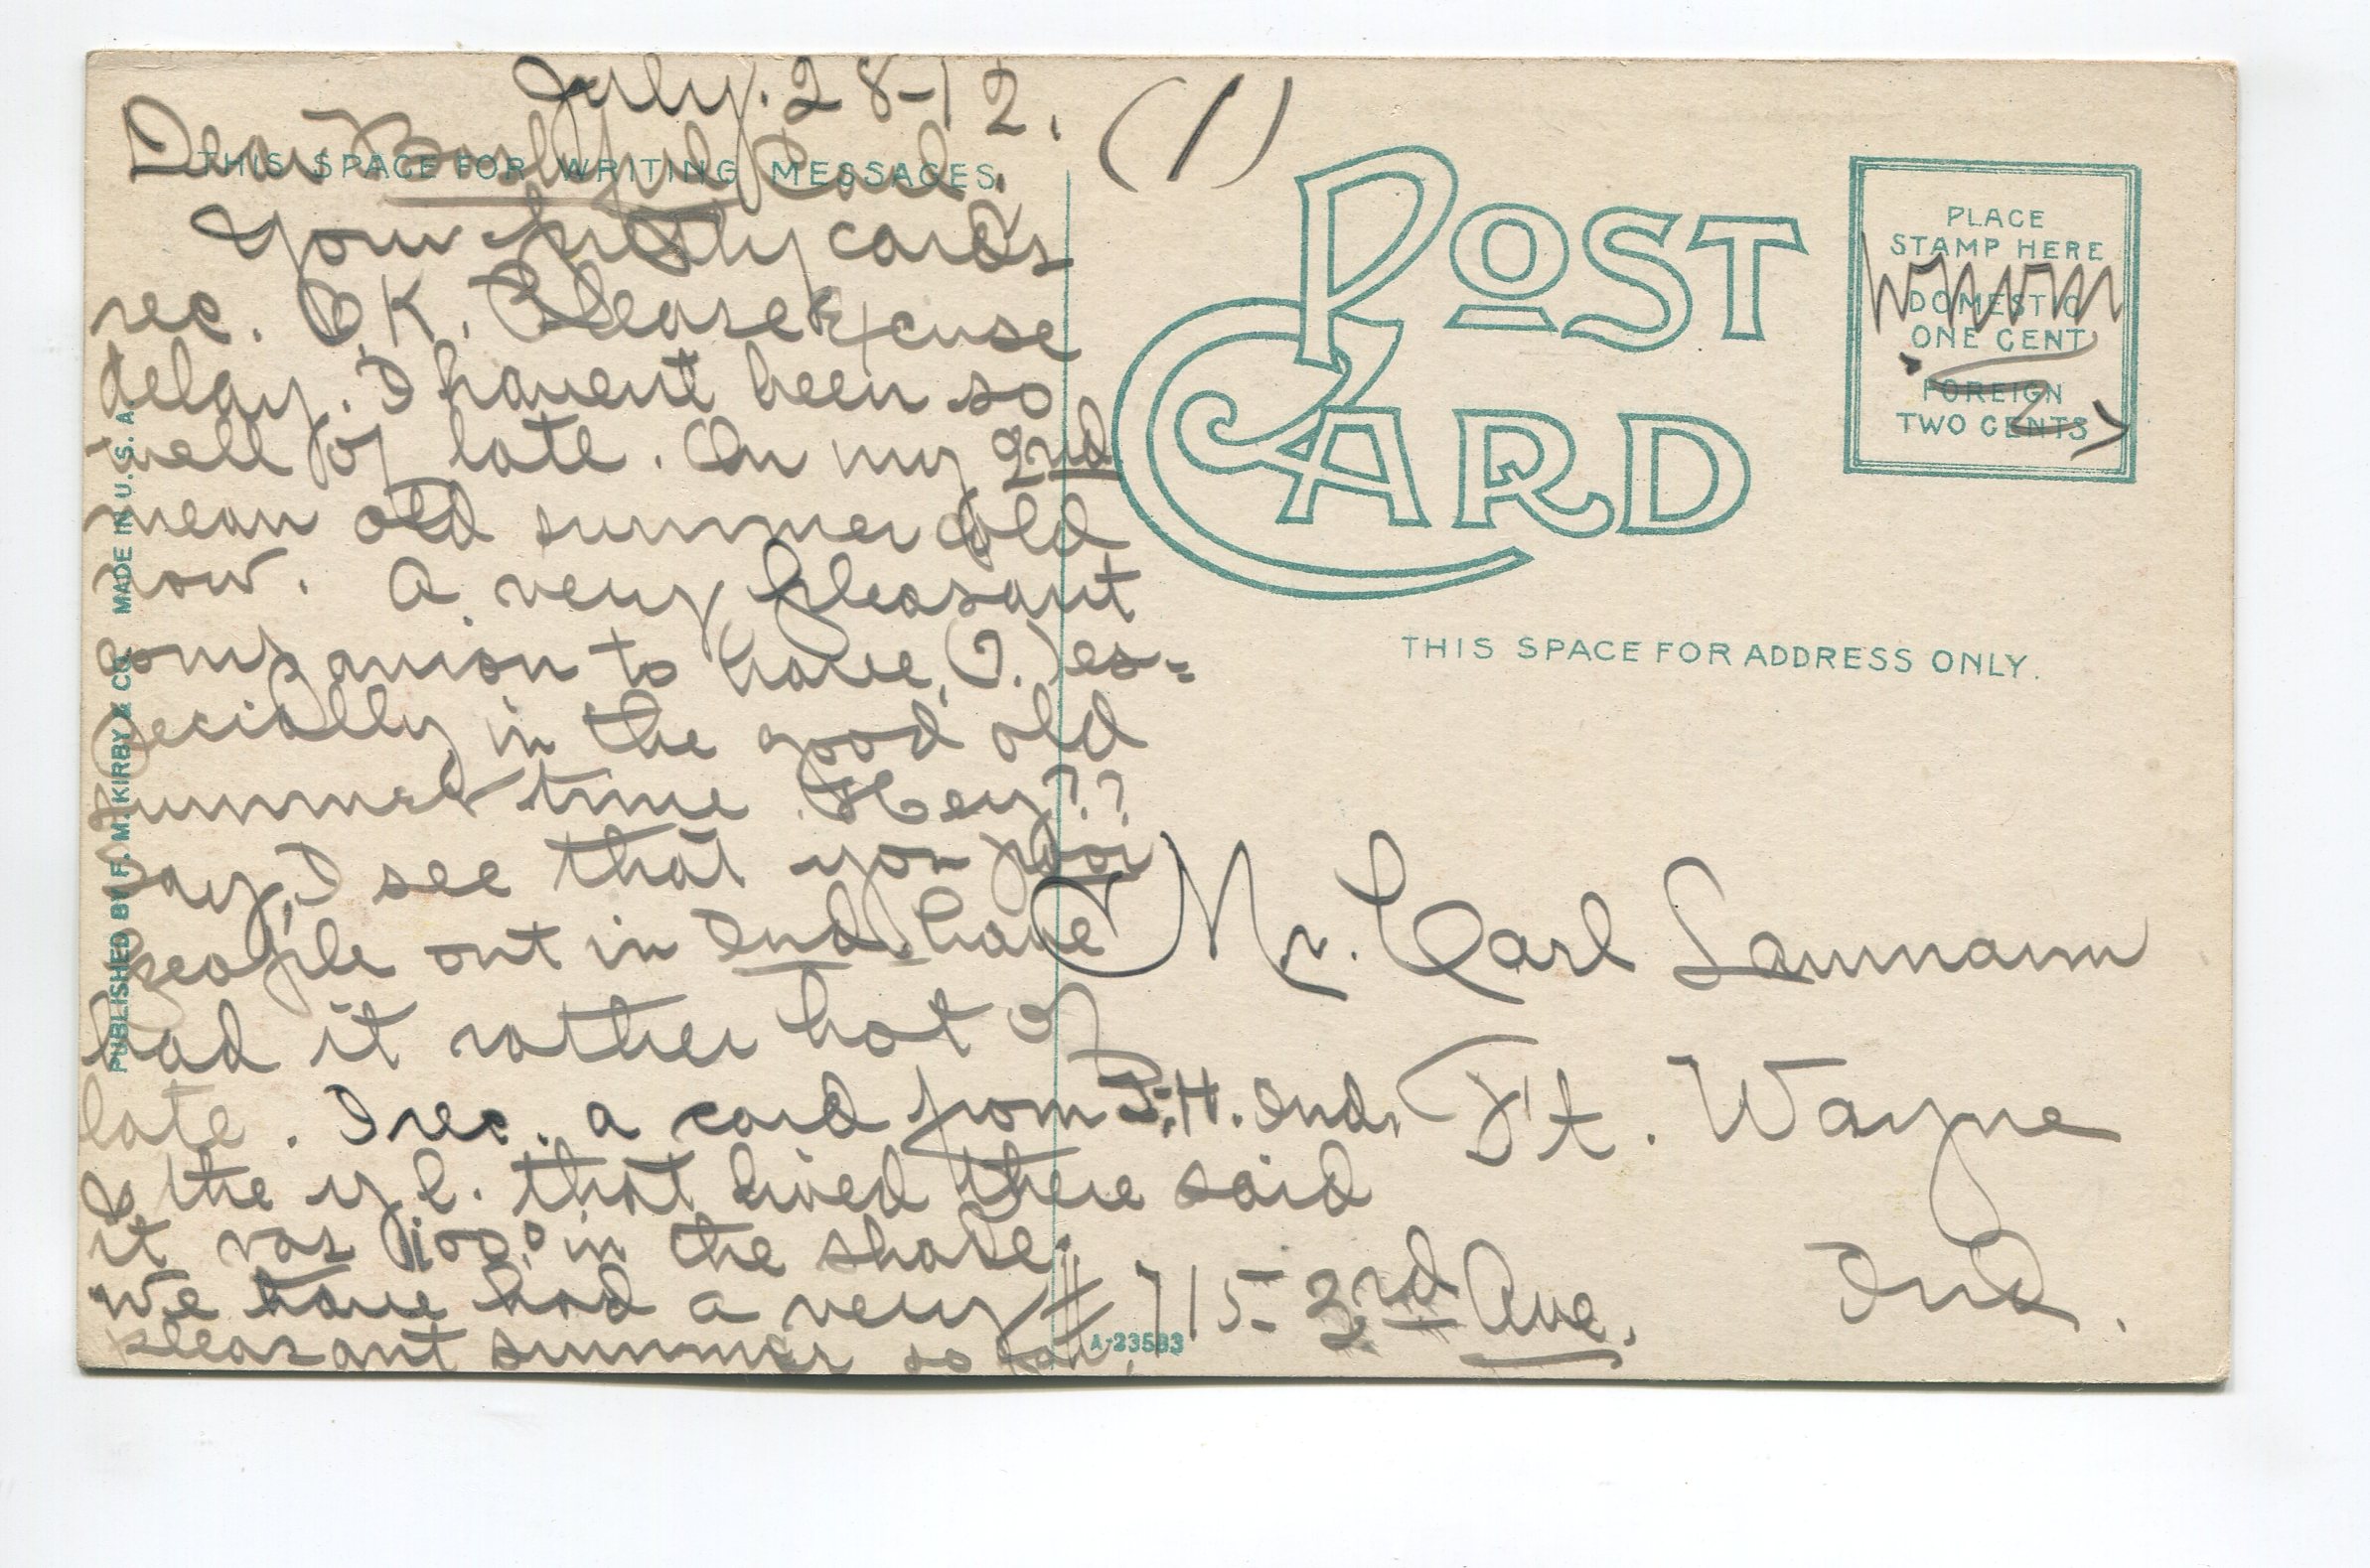 July. 28-12.
(1)
Dear Bashful Carl.
THIS SPACE FOR WRITING MESSAGES.
Your pretty cards
rec. O.K. Please Excuse
delay. I havent been so
well of late. On my 2nd
mean old summer cold
now. A very pleasant
companion to have, (?.) es=
pecially in the good old
summer time. Hey??
Say, I see that you poor
people out in Ind. have
had it rather hot of
late. I rec. a card from T.H. Ind.
& the y l. that lived there said
it was 100° in the shade.
We have had a very
pleasant summer so far.
PUBLISHED BY F. M. KIRBY & CO. MADE IN U. S. A.
POST
CARD
PLACE
STAMP HERE
DOMESTIC
ONE CENT
FOREIGN
TWO CENTS
THIS SPACE FOR ADDRESS ONLY.
Mr. Carl Laumann
Ft. Wayne
# 715- 3rd Ave.
Ind.
A-23583